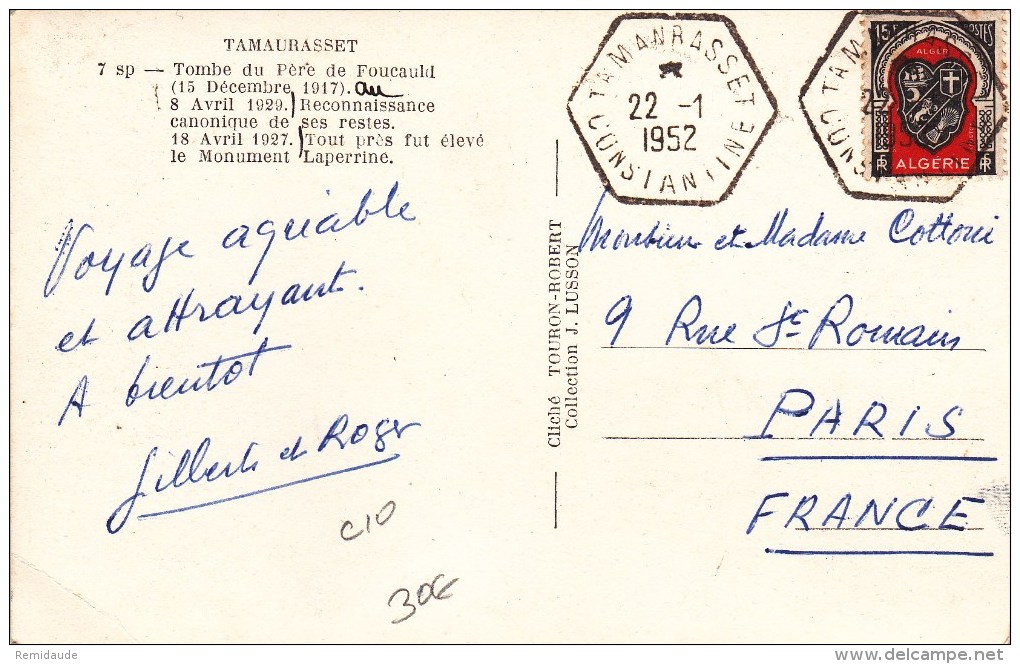 TAMAURASSET
7 sp — Tombe du Père de Foucauld
(15 Décembre 1917). au
8 Avril 1929. Reconnaissance
canonique de ses restes.
18 Avril 1927. Tout près fut élevé
le Monument Laperrine.
Voyage agréable
et attrayant.
A bientot
Gilberte et Roger
C10
30€
Cliché TOURON-ROBERT
Collection J. LUSSON
TAMANRASSET
22 -1
1952
CONSTANTINE
15F POSTES
ALGER
RF ALGÉRIE RF
Monsieur et Madame Cottoni
9 Rue St Romain
PARIS
FRANCE
Remidaude
www.delcampe.net